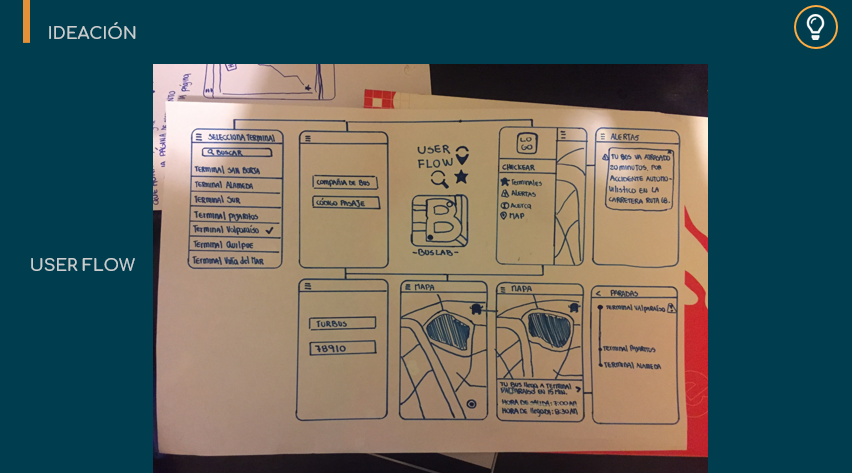 IDEACIÓN
USER FLOW
la página
SELECCIONA TERMINAL
BUSCAR
TERMINAL SAN BORJA
TERMINAL ALAMEDA
TERMINAL SUR
TERMINAL PAJARITOS
TERMINAL VALPARAÍSO
TERMINAL QUILPUE
TERMINAL VIÑA DEL MAR
COMPAÑIA DE BUS
CÓDIGO PASAJE
USER
FLOW
B
-BUSLAB-
LO
GO
CHECKEAR
TERMINALES
ALERTAS
MAP
ALERTAS
TU BUS VA ATRASADO
20 MINUTOS, POR
ACCIDENTE AUTOMO-
VILÍSTICO EN LA
CARRETERA RUTA 68.
TURBUS
78910
MAPA
MAPA
TU BUS LLEGA A TERMINAL
VALPARAISO EN 15 MIN.
HORA DE SALIDA: 7:00 AM
HORA DE LLEGADA: 8:30 AM
PARADAS
TERMINAL VALPARAÍSO
TERMINAL PAJARITOS
TERMINAL ALAMEDA